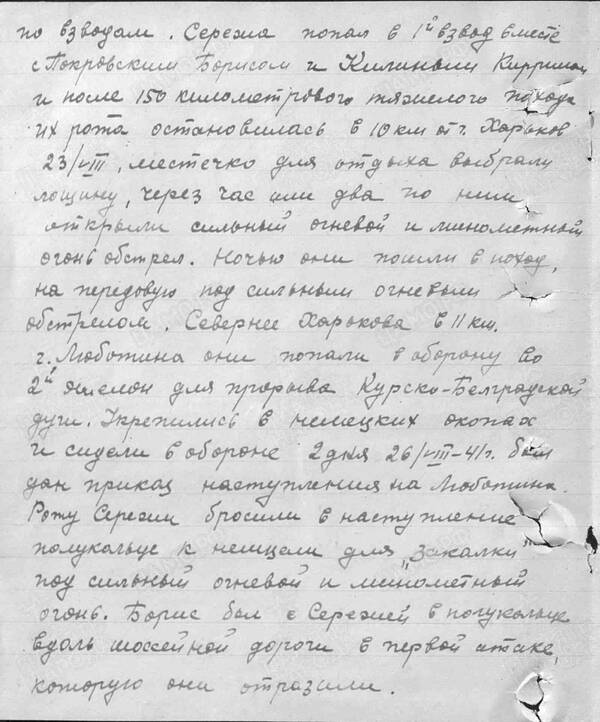 по взводам. Сережа попал в 1й взвод вместе
с Покровским Борисом и Килиным
и после 150 километрового тяжелого похода
их рота остановилась в 10 км от г. Харьков
23/VIII, местечко для отдыха выбрали
лощину, через час или два по ним
открыли сильный огневой и минометный
огонь обстрел. Ночью они пошли в поход,
на передовую под сильным огневым
обстрелом. Севернее Харькова в 11 км.
г. Люботина они попали в оборону во
2й эшелон для прорыва Курско-Белградской
дуги. Укрепились в немецких окопах
и сидели в обороне 2 дня 26/VIII-4/г. был
дан приказ наступления на Люботина.
Роту Сережи бросили в наступление
полукольце к немцам для "закалки"
под сильный огневой и минометный
огонь. Борис был с Сережей в полукольце
вдоль шоссейной дороги в первой атаке,
которую они отразили.